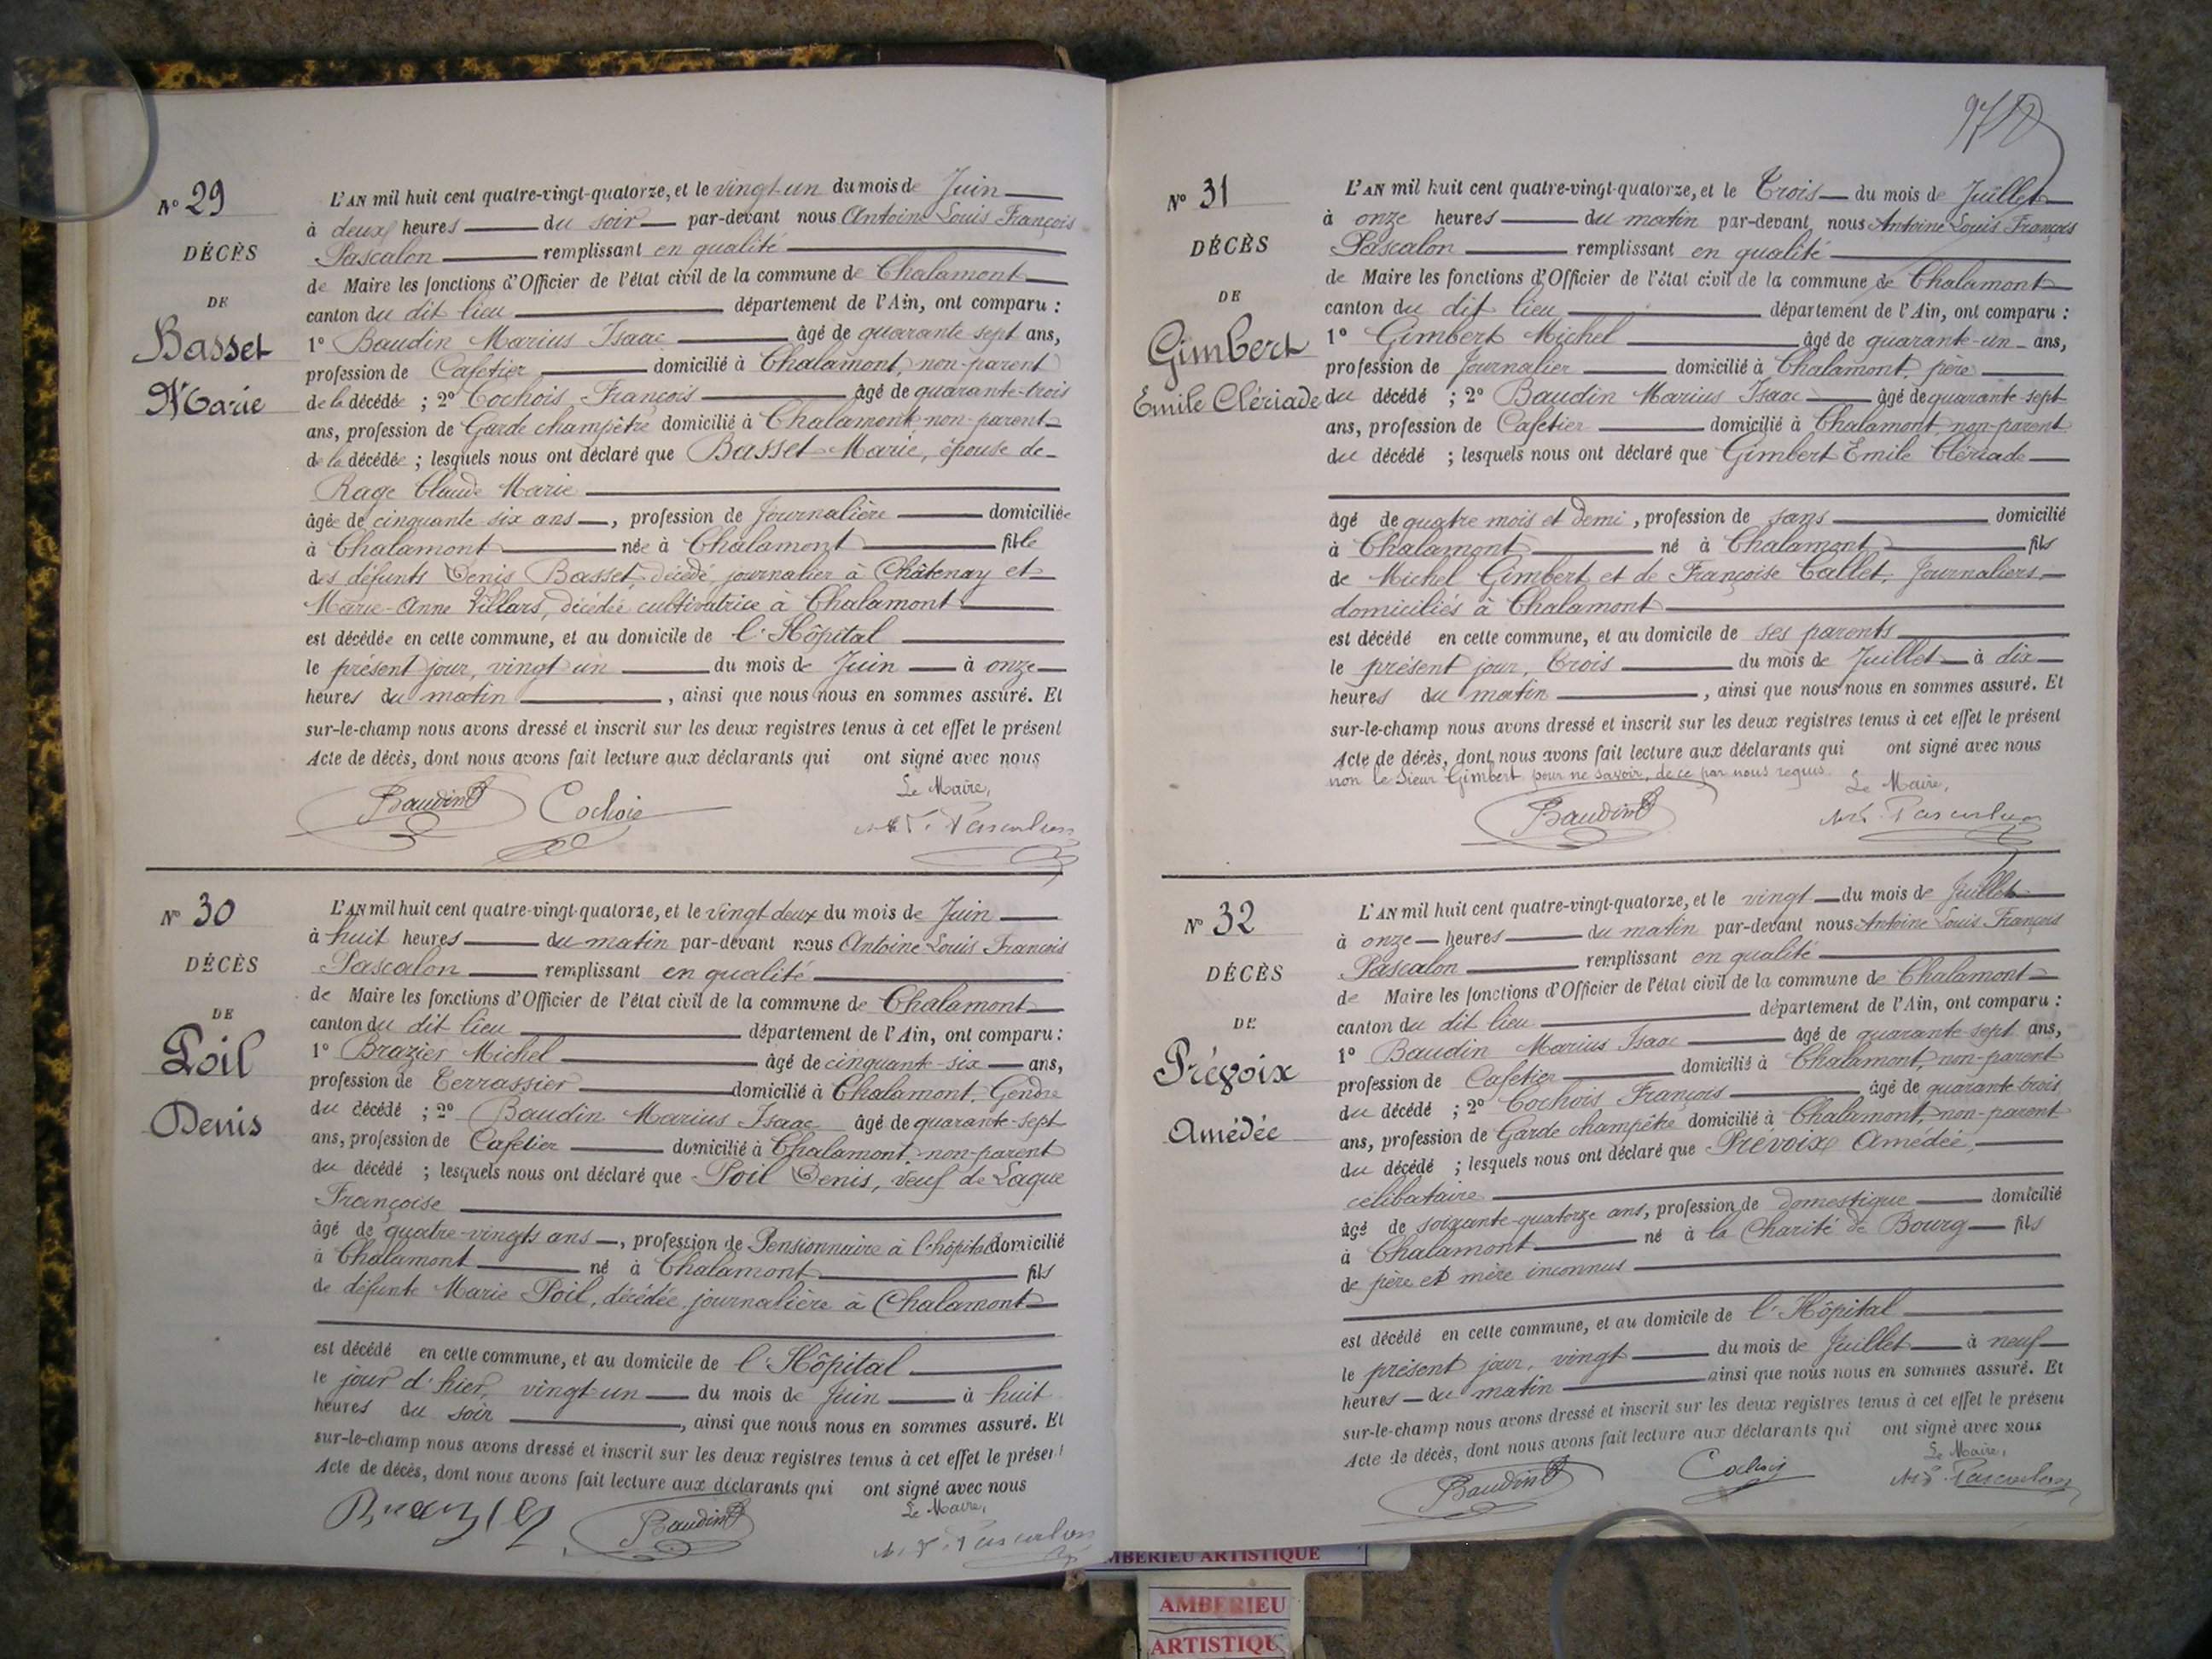 N° 29
DÉCÈS
DE
Basset
Marie
L'AN mil huit cent quatre-vingt-quatorze, et le vingt-un du mois de Juin
à deux heures du soir par-devant nous Antoine Louis François
Pascalon remplissant en qualité
de Maire les fonctions d'Officier de l'état civil de la commune de Chalamont
canton du dit lieu département de l'Ain, ont comparu :
1° Baudin Marius Isaac âgé de quarante-sept ans,
profession de Cafetier domicilié à Chalamont, non-parent
de la décédée ; 2° Cochois François âgé de quarante-trois
ans, profession de Garde champêtre domicilié à Chalamont non-parent
de la décédée ; lesquels nous ont déclaré que Basset Marie, épouse de
Rage Claude Marie
âgée de cinquante six ans, profession de Journalière domiciliée
à Chalamont née à Chalamont fille
des défunts Denis Basset, décédé, journalier à Châtenay et
Marie-Anne Villars, décédée cultivatrice à Chalamont
est décédée en cette commune, et au domicile de l'Hôpital
le présent jour, vingt un du mois de Juin à onze
heures du matin, ainsi que nous nous en sommes assuré. Et
sur-le-champ nous avons dressé et inscrit sur les deux registres tenus à cet effet le présent
Acte de décès, dont nous avons fait lecture aux déclarants qui ont signé avec nous
Le Maire,
Baudin Cochois Pascalon
N° 30
DÉCÈS
DE
Poil
Denis
L'AN mil huit cent quatre-vingt-quatorze, et le vingt deux du mois de Juin
à huit heures du matin par-devant nous Antoine Louis François
Pascalon remplissant en qualité
de Maire les fonctions d'Officier de l'état civil de la commune de Chalamont
canton du dit lieu département de l'Ain, ont comparu :
1° Brazier Michel âgé de cinquante-six ans,
profession de Terrassier domicilié à Chalamont, Gendre
du décédé ; 2° Baudin Marius Isaac âgé de quarante-sept
ans, profession de Cafetier domicilié à Chalamont, non-parent
du décédé ; lesquels nous ont déclaré que Poil Denis, veuf de Laque
Françoise
âgé de quatre-vingts ans, profession de Pensionnaire à l'hôpital domicilié
à Chalamont né à Chalamont fils
de défunte Marie Poil, décédée, journalière à Chalamont
est décédé en cette commune, et au domicile de l'Hôpital
le jour d'hier, vingt-un du mois de Juin à huit
heures du soir, ainsi que nous nous en sommes assuré. Et
sur-le-champ nous avons dressé et inscrit sur les deux registres tenus à cet effet le présent
Acte de décès, dont nous avons fait lecture aux déclarants qui ont signé avec nous
Le Maire,
Brazier Baudin Pascalon
N° 31
DÉCÈS
DE
Gimbert
Emile Clériade
L'AN mil huit cent quatre-vingt-quatorze, et le Trois du mois de Juillet
à onze heures du matin par-devant nous Antoine Louis François
Pascalon remplissant en qualité
de Maire les fonctions d'Officier de l'état civil de la commune de Chalamont
canton du dit lieu département de l'Ain, ont comparu :
1° Gimbert Michel âgé de quarante-un ans,
profession de Journalier domicilié à Chalamont, père
du décédé ; 2° Baudin Marius Isaac âgé de quarante-sept
ans, profession de Cafetier domicilié à Chalamont, non-parent
du décédé ; lesquels nous ont déclaré que Gimbert Emile Clériade
âgé de quatre mois et demi, profession de sans domicilié
à Chalamont né à Chalamont fils
de Michel Gimbert et de Françoise Callet, Journaliers,
domiciliés à Chalamont
est décédé en cette commune, et au domicile de ses parents
le présent jour, Trois du mois de Juillet à dix
heures du matin, ainsi que nous nous en sommes assuré. Et
sur-le-champ nous avons dressé et inscrit sur les deux registres tenus à cet effet le présent
Acte de décès, dont nous avons fait lecture aux déclarants qui ont signé avec nous
non le Sieur Gimbert pour ne savoir, de ce par nous requis.
Le Maire,
Baudin Pascalon
N° 32
DÉCÈS
DE
Prévoix
Amédée
L'AN mil huit cent quatre-vingt-quatorze, et le vingt du mois de Juillet
à onze heures du matin par-devant nous Antoine Louis François
Pascalon remplissant en qualité
de Maire les fonctions d'Officier de l'état civil de la commune de Chalamont
canton du dit lieu département de l'Ain, ont comparu :
1° Baudin Marius Isaac âgé de quarante-sept ans,
profession de Cafetier domicilié à Chalamont, non-parent
du décédé ; 2° Cochois François âgé de quarante-trois
ans, profession de Garde champêtre domicilié à Chalamont, non-parent
du décédé ; lesquels nous ont déclaré que Prévoix Amédée,
célibataire
âgé de soixante-quatorze ans, profession de domestique domicilié
à Chalamont né à la Charité de Bourg fils
de père et mère inconnus
est décédé en cette commune, et au domicile de l'Hôpital
le présent jour, vingt du mois de Juillet à neuf
heures du matin ainsi que nous nous en sommes assuré. Et
sur-le-champ nous avons dressé et inscrit sur les deux registres tenus à cet effet le présent
Acte de décès, dont nous avons fait lecture aux déclarants qui ont signé avec nous
Le Maire,
Baudin Cochois Pascalon
AMBERIEU ARTISTIQUE
AMBERIEU
ARTISTIQU